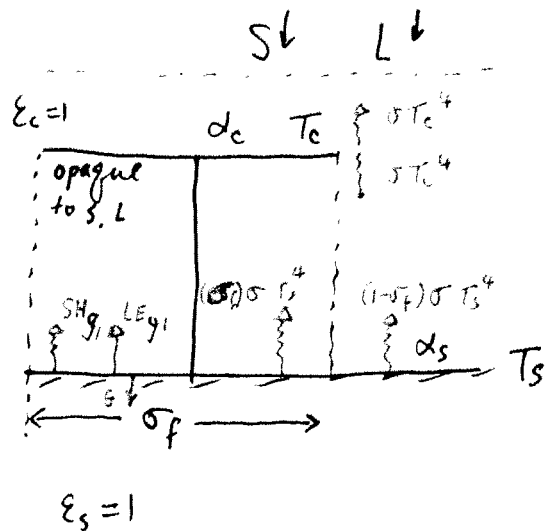 S↓ L↓
ε_c = 1
α_c T_c σT_c⁴
opaque to S, L
σT_c⁴
SH_g1 LE_g1 (σ_f)σT_s⁴ (1-σ_f)σT_s⁴
α_s
T_s
G
σ_f
ε_s = 1